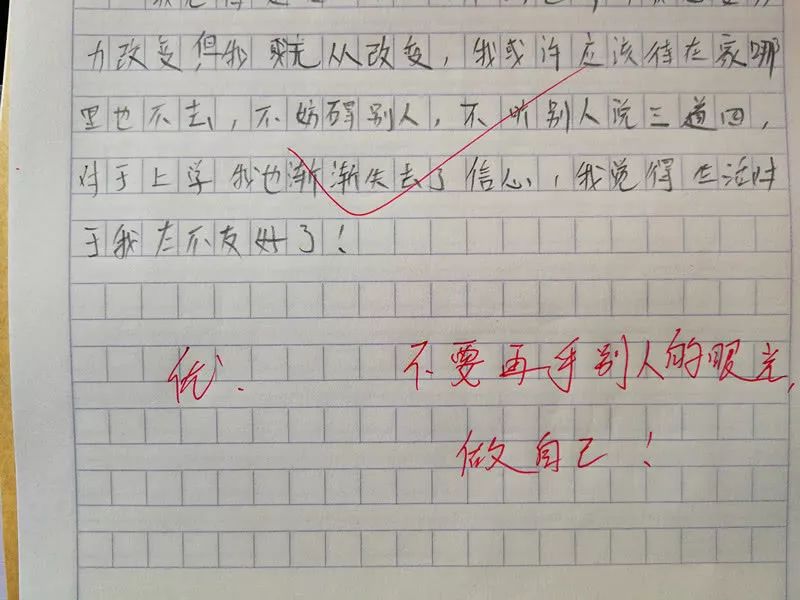 力改变,但我既无从改变,我或许应该待在家哪
里也不去,不妨碍别人,不听别人说三道四,
对于上学我也渐渐失去了信心,我觉得生活对
于我太不友好了!
优.
不要再乎别人的眼光,
做自己!